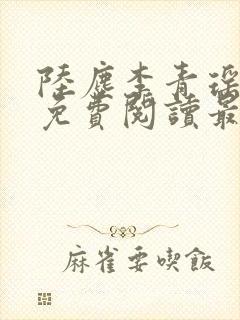 陸塵李青瑤
免費閱讀最
麻雀要喫飯